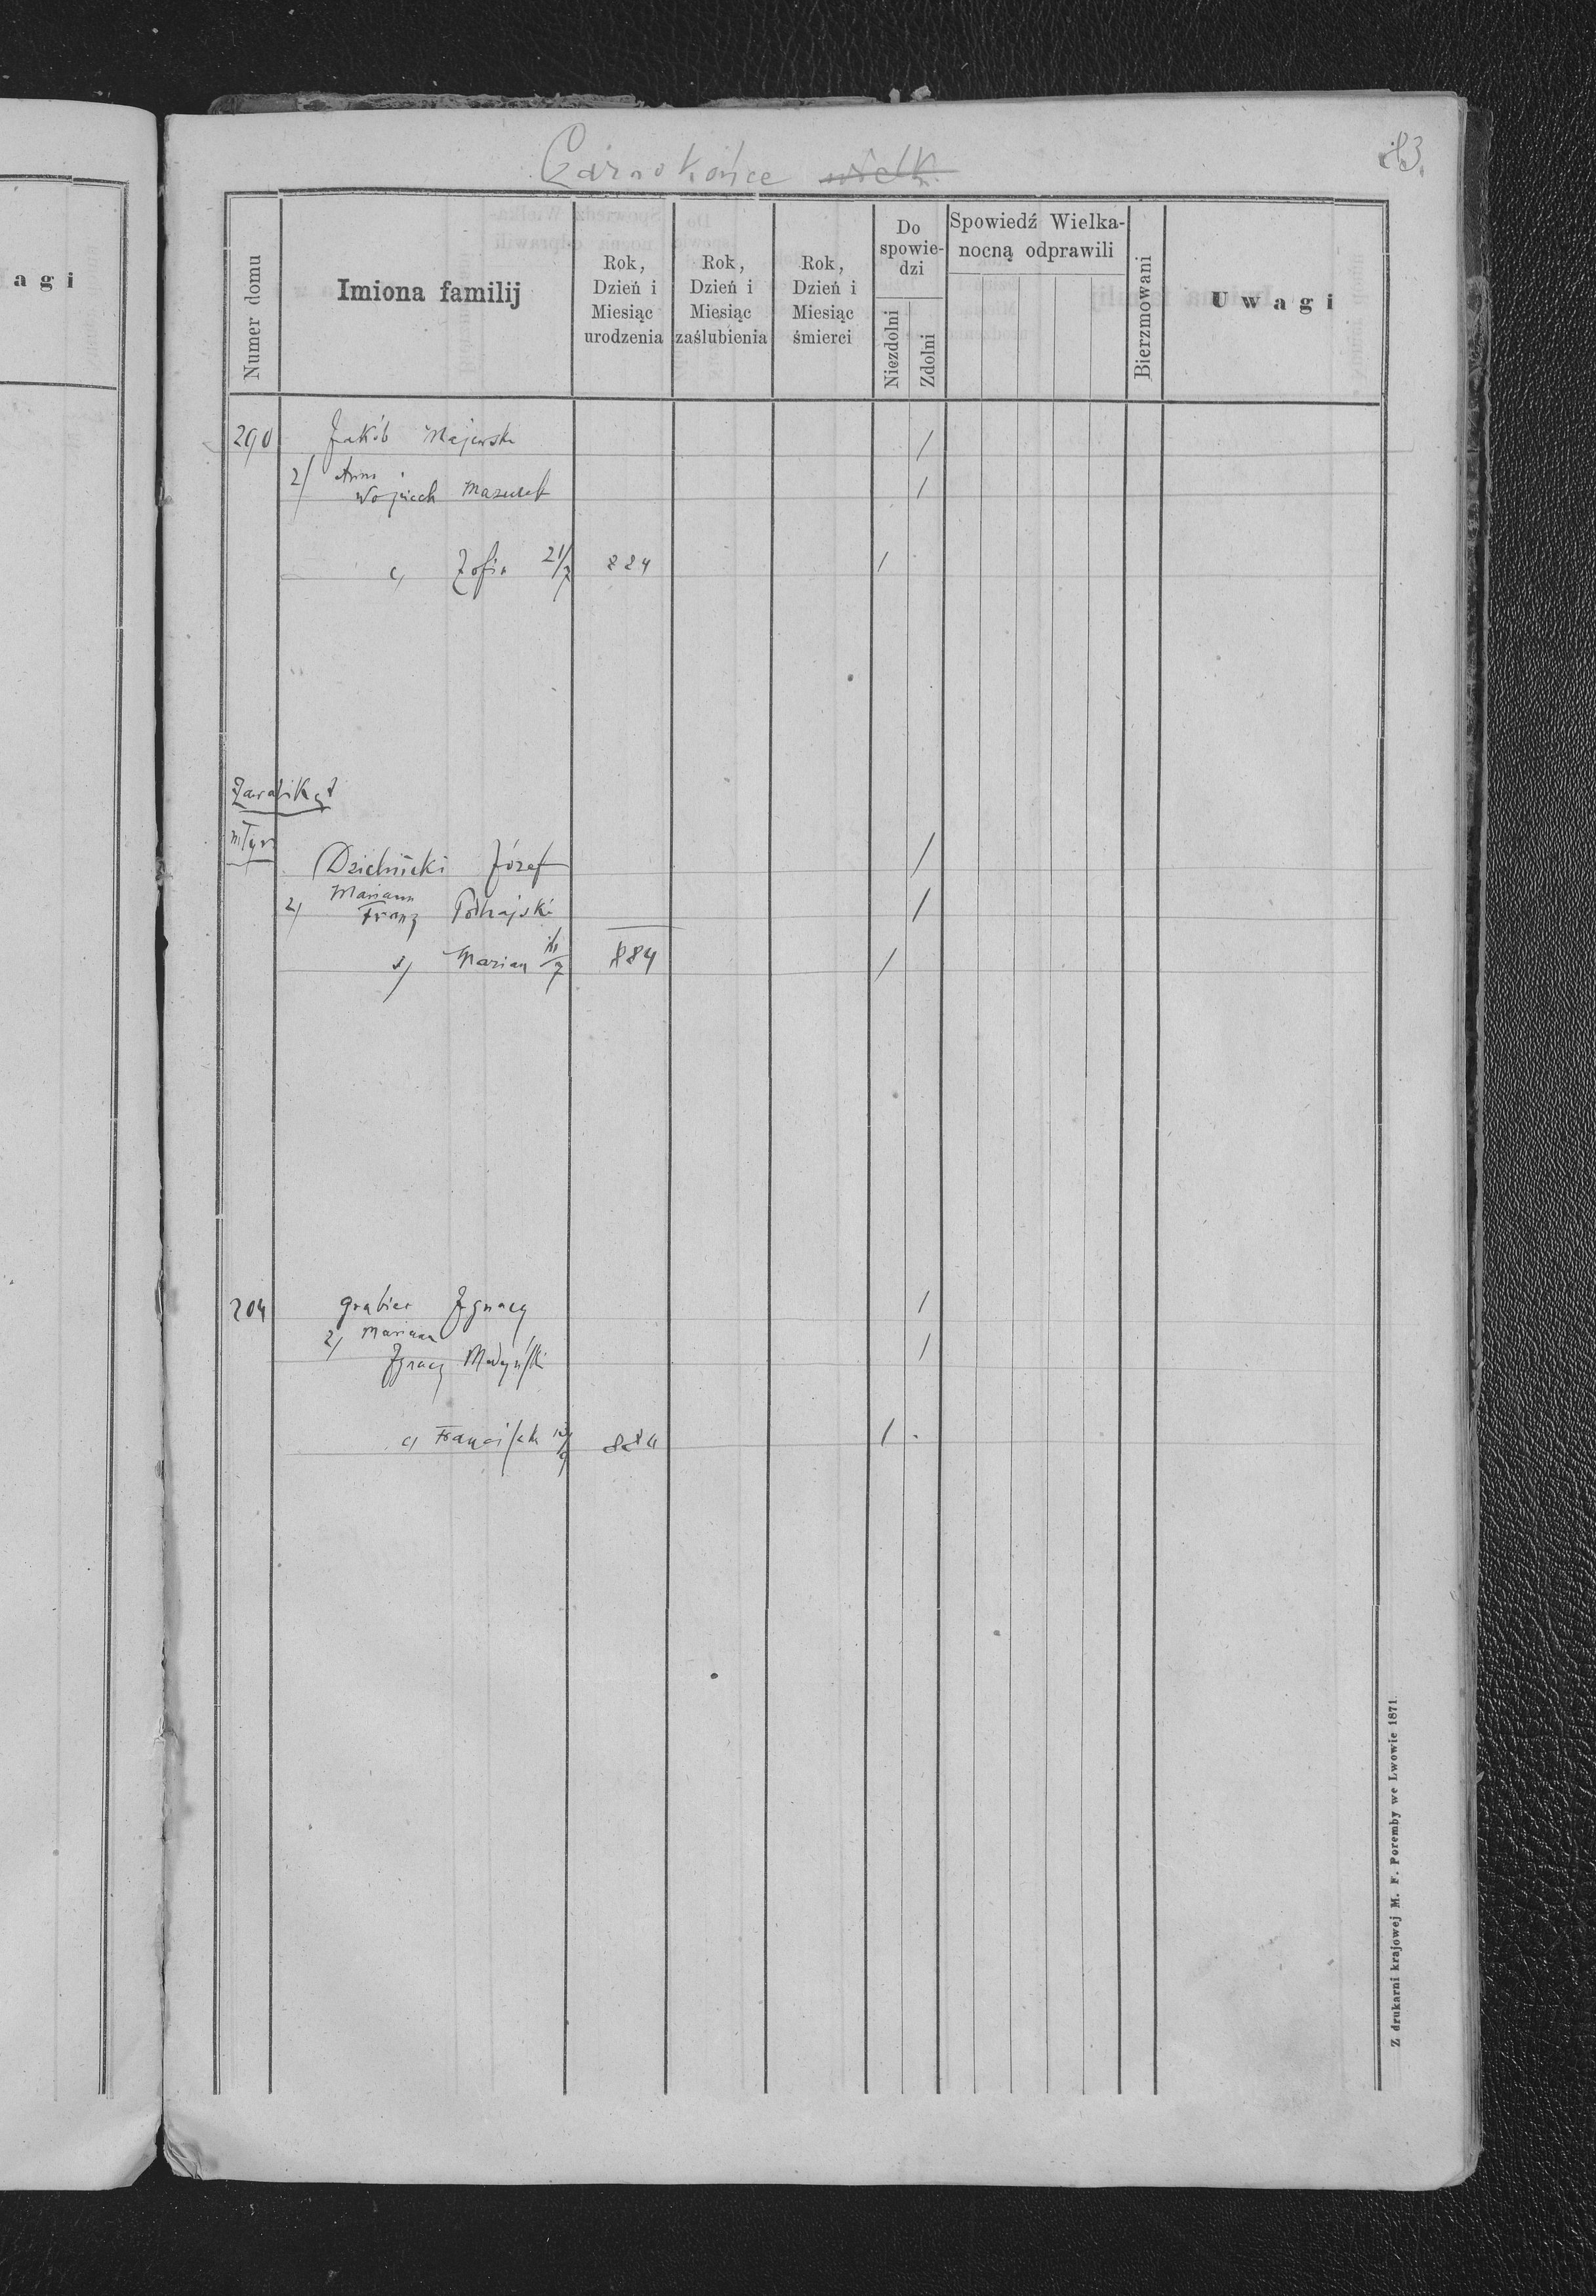 Czarnokońce wielk.
83.
agi
Numer domu
Imiona familij
Rok, Dzień i Miesiąc urodzenia
Rok, Dzień i Miesiąc zaślubienia
Rok, Dzień i Miesiąc śmierci
Do spowiedzi
Niezdolni
Zdolni
Spowiedź Wielkanocną odprawili
Bierzmowani
Uwagi
290 Jakób Majewski /
2/ Anna
Wojciech Mazurek /
c, Zofia 21/7 884 /
młyn
Dzielnicki Józef /
2/ Mariann
Franz Podhajski /
s/ Marian 7 884 /
204 Grabiec Ignacy /
2/ Mariann
Ignacy /
c, 884 /
Z drukarni krajowej M. F. Poremby we Lwowie 1871.